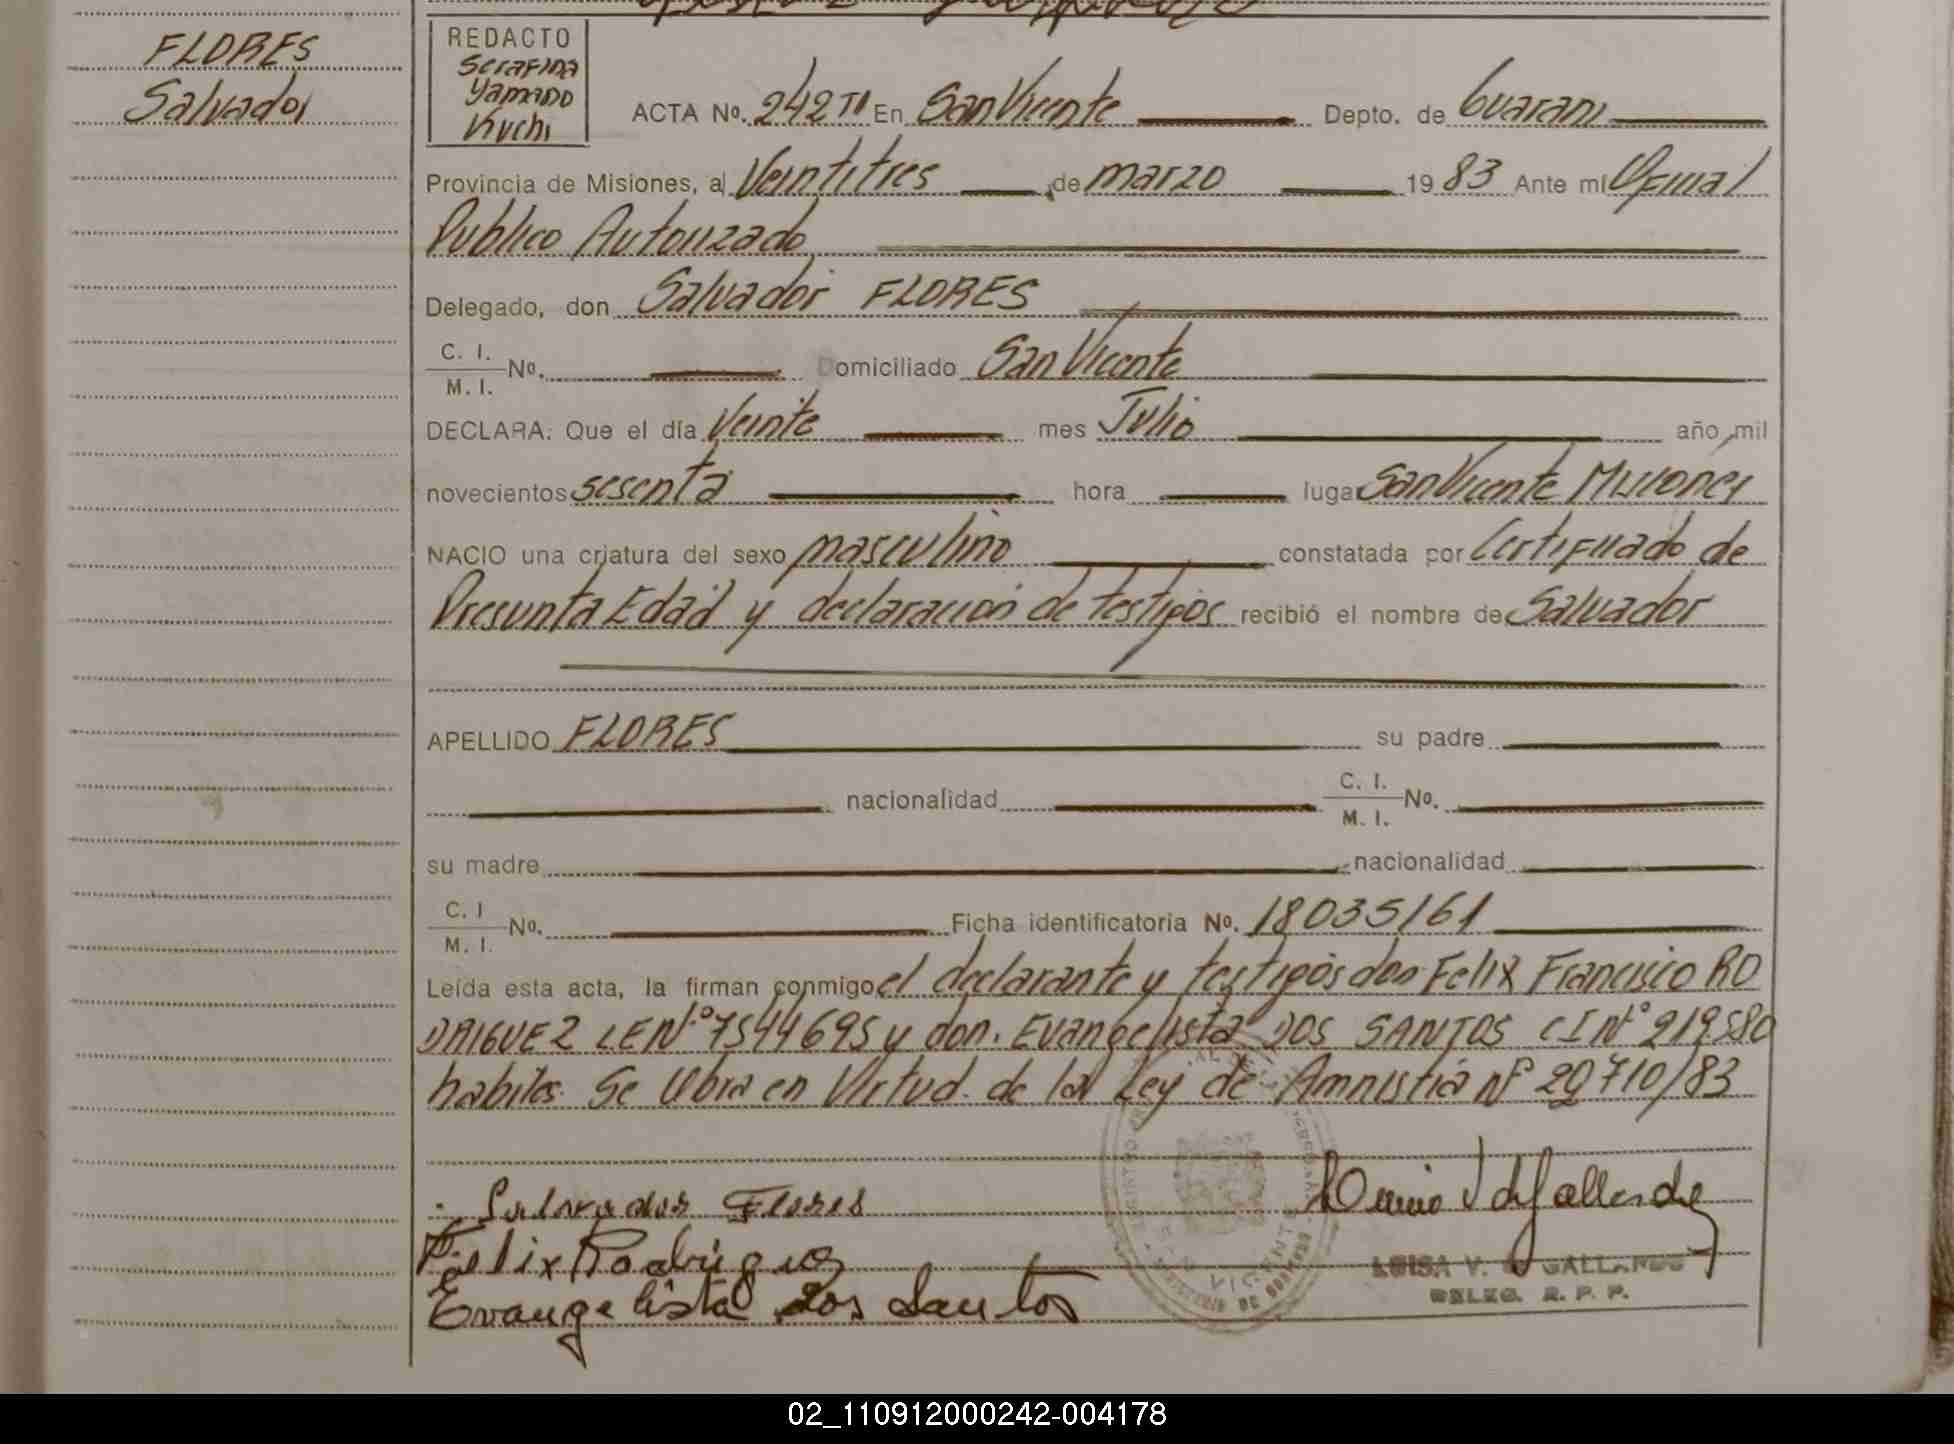 FLORES
Salvador
REDACTO
Serafina
Yamano
Kuchi
ACTA No. 242 TI En San Vicente Depto. de Guarani
Provincia de Misiones, a Veintitres de marzo 19 83 Ante mi Oficial
Publico Autorizado
Delegado, don Salvador FLORES
C. I.
M. I. No. Domiciliado San Vicente
DECLARA: Que el día Veinte mes Julio año mil
novecientos sesenta hora lugar San Vicente Misiones
NACIO una criatura del sexo masculino constatada por Certificado de
Presunta Edad y declaración de testigos recibió el nombre de Salvador
APELLIDO FLORES su padre
nacionalidad C. I.
M. I. No.
su madre nacionalidad
C. I
M. I. No. Ficha identificatoria No. 18035161
Leída esta acta, la firman conmigo el declarante y testigos don Felix Francisco RO
DRIGUEZ LE Nº 7544695 y don. Evangelista DOS SANTOS CI Nº 219580
habiles. Se labra en Virtud. de la Ley de Amnistia nº 20710/83
Salvador Flores
Felix Rodriguez
Evangelista dos Santos
LUISA V. de GALLARDO
DELEG. R. P. P.
02_110912000242-004178